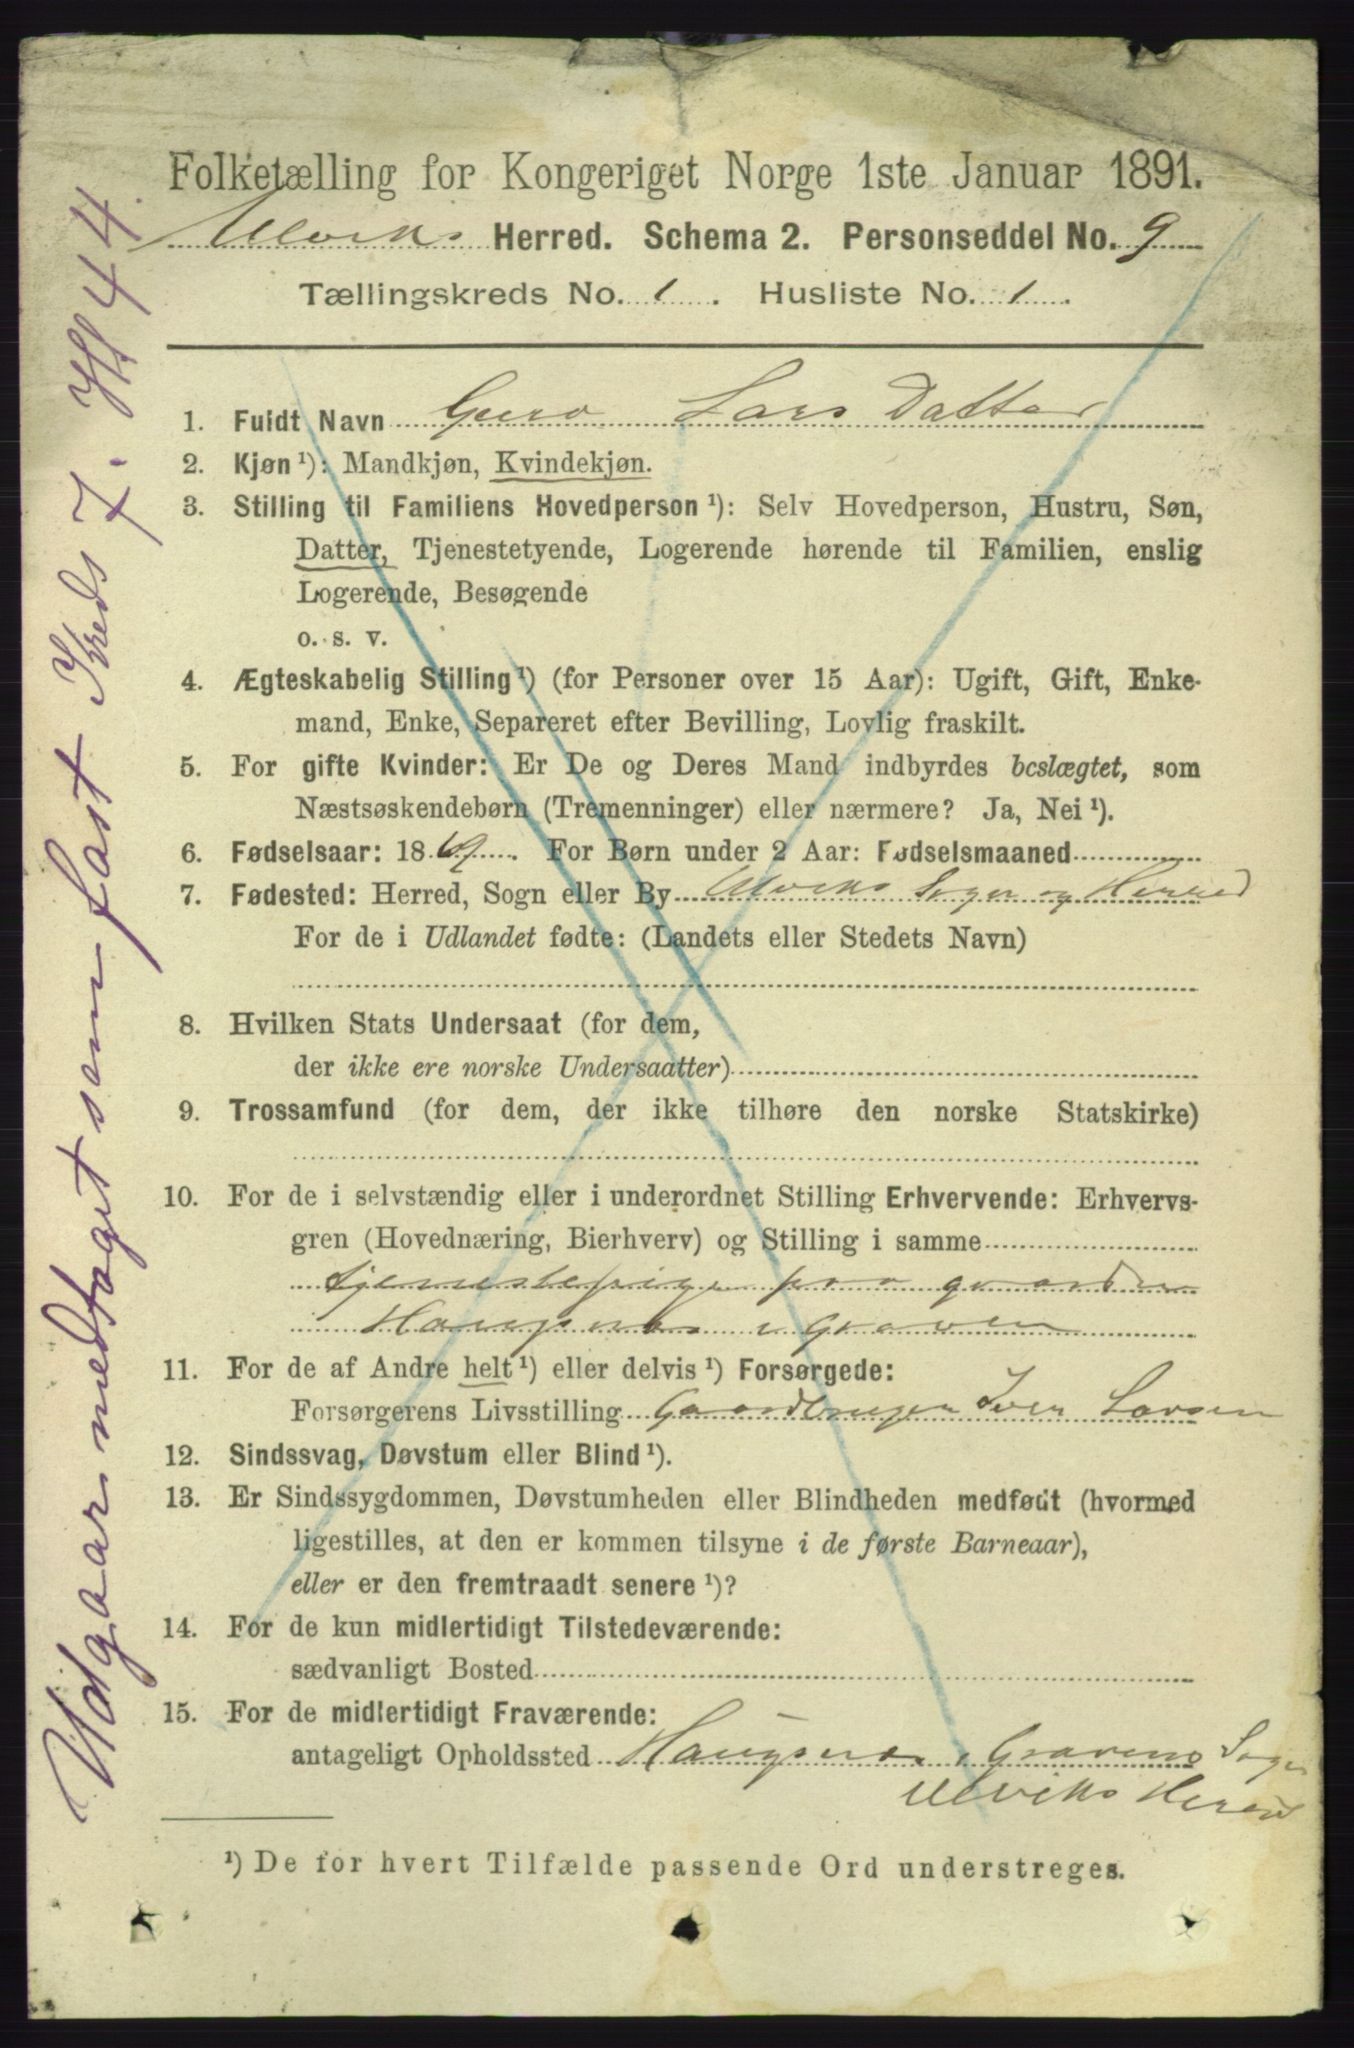 Folketælling for Kongeriget Norge 1ste Januar 1891.
Ulviks Herred. Schema 2. Personseddel No. 9
Tællingskreds No. 1. Husliste No. 1.
1. Fuldt Navn Guro Lars Datter
2. Kjøn ¹): Mandkjøn, Kvindekjøn.
3. Stilling til Familiens Hovedperson ¹): Selv Hovedperson, Hustru, Søn,
Datter, Tjenestetyende, Logerende hørende til Familien, enslig
Logerende, Besøgende
o. s. v.
4. Ægteskabelig Stilling ¹) (for Personer over 15 Aar): Ugift, Gift, Enke-
mand, Enke, Separeret efter Bevilling, Lovlig fraskilt.
5. For gifte Kvinder: Er De og Deres Mand indbyrdes beslægtet, som
Næstsøskendebørn (Tremenninger) eller nærmere? Ja, Nei ¹).
6. Fødselsaar: 1869. For Børn under 2 Aar: Fødselsmaaned
7. Fødested: Herred, Sogn eller By Ulviks Sogn og Herred
For de i Udlandet fødte: (Landets eller Stedets Navn)
8. Hvilken Stats Undersaat (for dem,
der ikke ere norske Undersaatter)
9. Trossamfund (for dem, der ikke tilhøre den norske Statskirke)
10. For de i selvstændig eller i underordnet Stilling Erhvervende: Erhvervs-
gren (Hovednæring, Bierhverv) og Stilling i samme
tjenestepige paa gaarden
i Graven
11. For de af Andre helt ¹) eller delvis ¹) Forsørgede:
Forsørgerens Livsstilling Gaardbruger Iver Larsen
12. Sindssvag, Døvstum eller Blind ¹).
13. Er Sindssygdommen, Døvstumheden eller Blindheden medfødt (hvormed
ligestilles, at den er kommen tilsyne i de første Barneaar),
eller er den fremtraadt senere ¹)?
14. For de kun midlertidigt Tilstedeværende:
sædvanligt Bosted
15. For de midlertidigt Fraværende:
antageligt Opholdssted i Gravens Sogn
Ulviks Herred
¹) De for hvert Tilfælde passende Ord understreges.
Udgaar medtaget som fast Kreds 7. Hl 44.